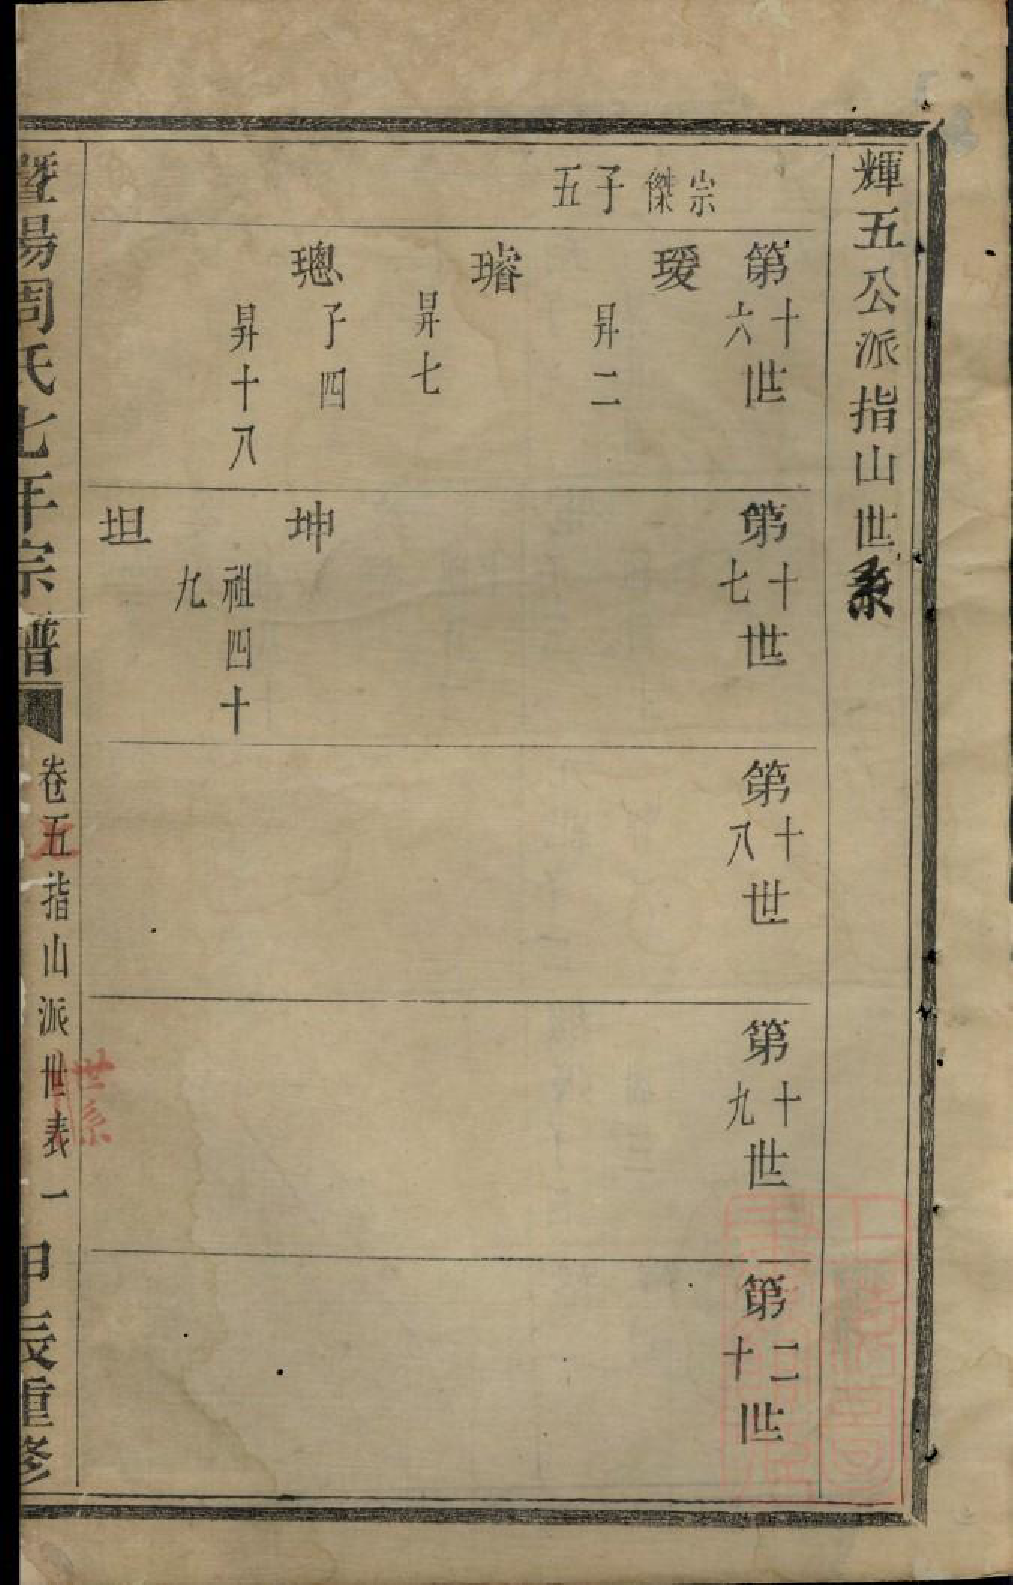 輝五公派指山世系
宗傑子五
第十六世
瑗
昇二
璿
昇七
璁
子四
昇十八
第十七世
坤
祖四十九
坦
第十八世
第十九世
第二十世
暨陽周氏
宗譜
卷五指山派世表一
甲辰重修
世系